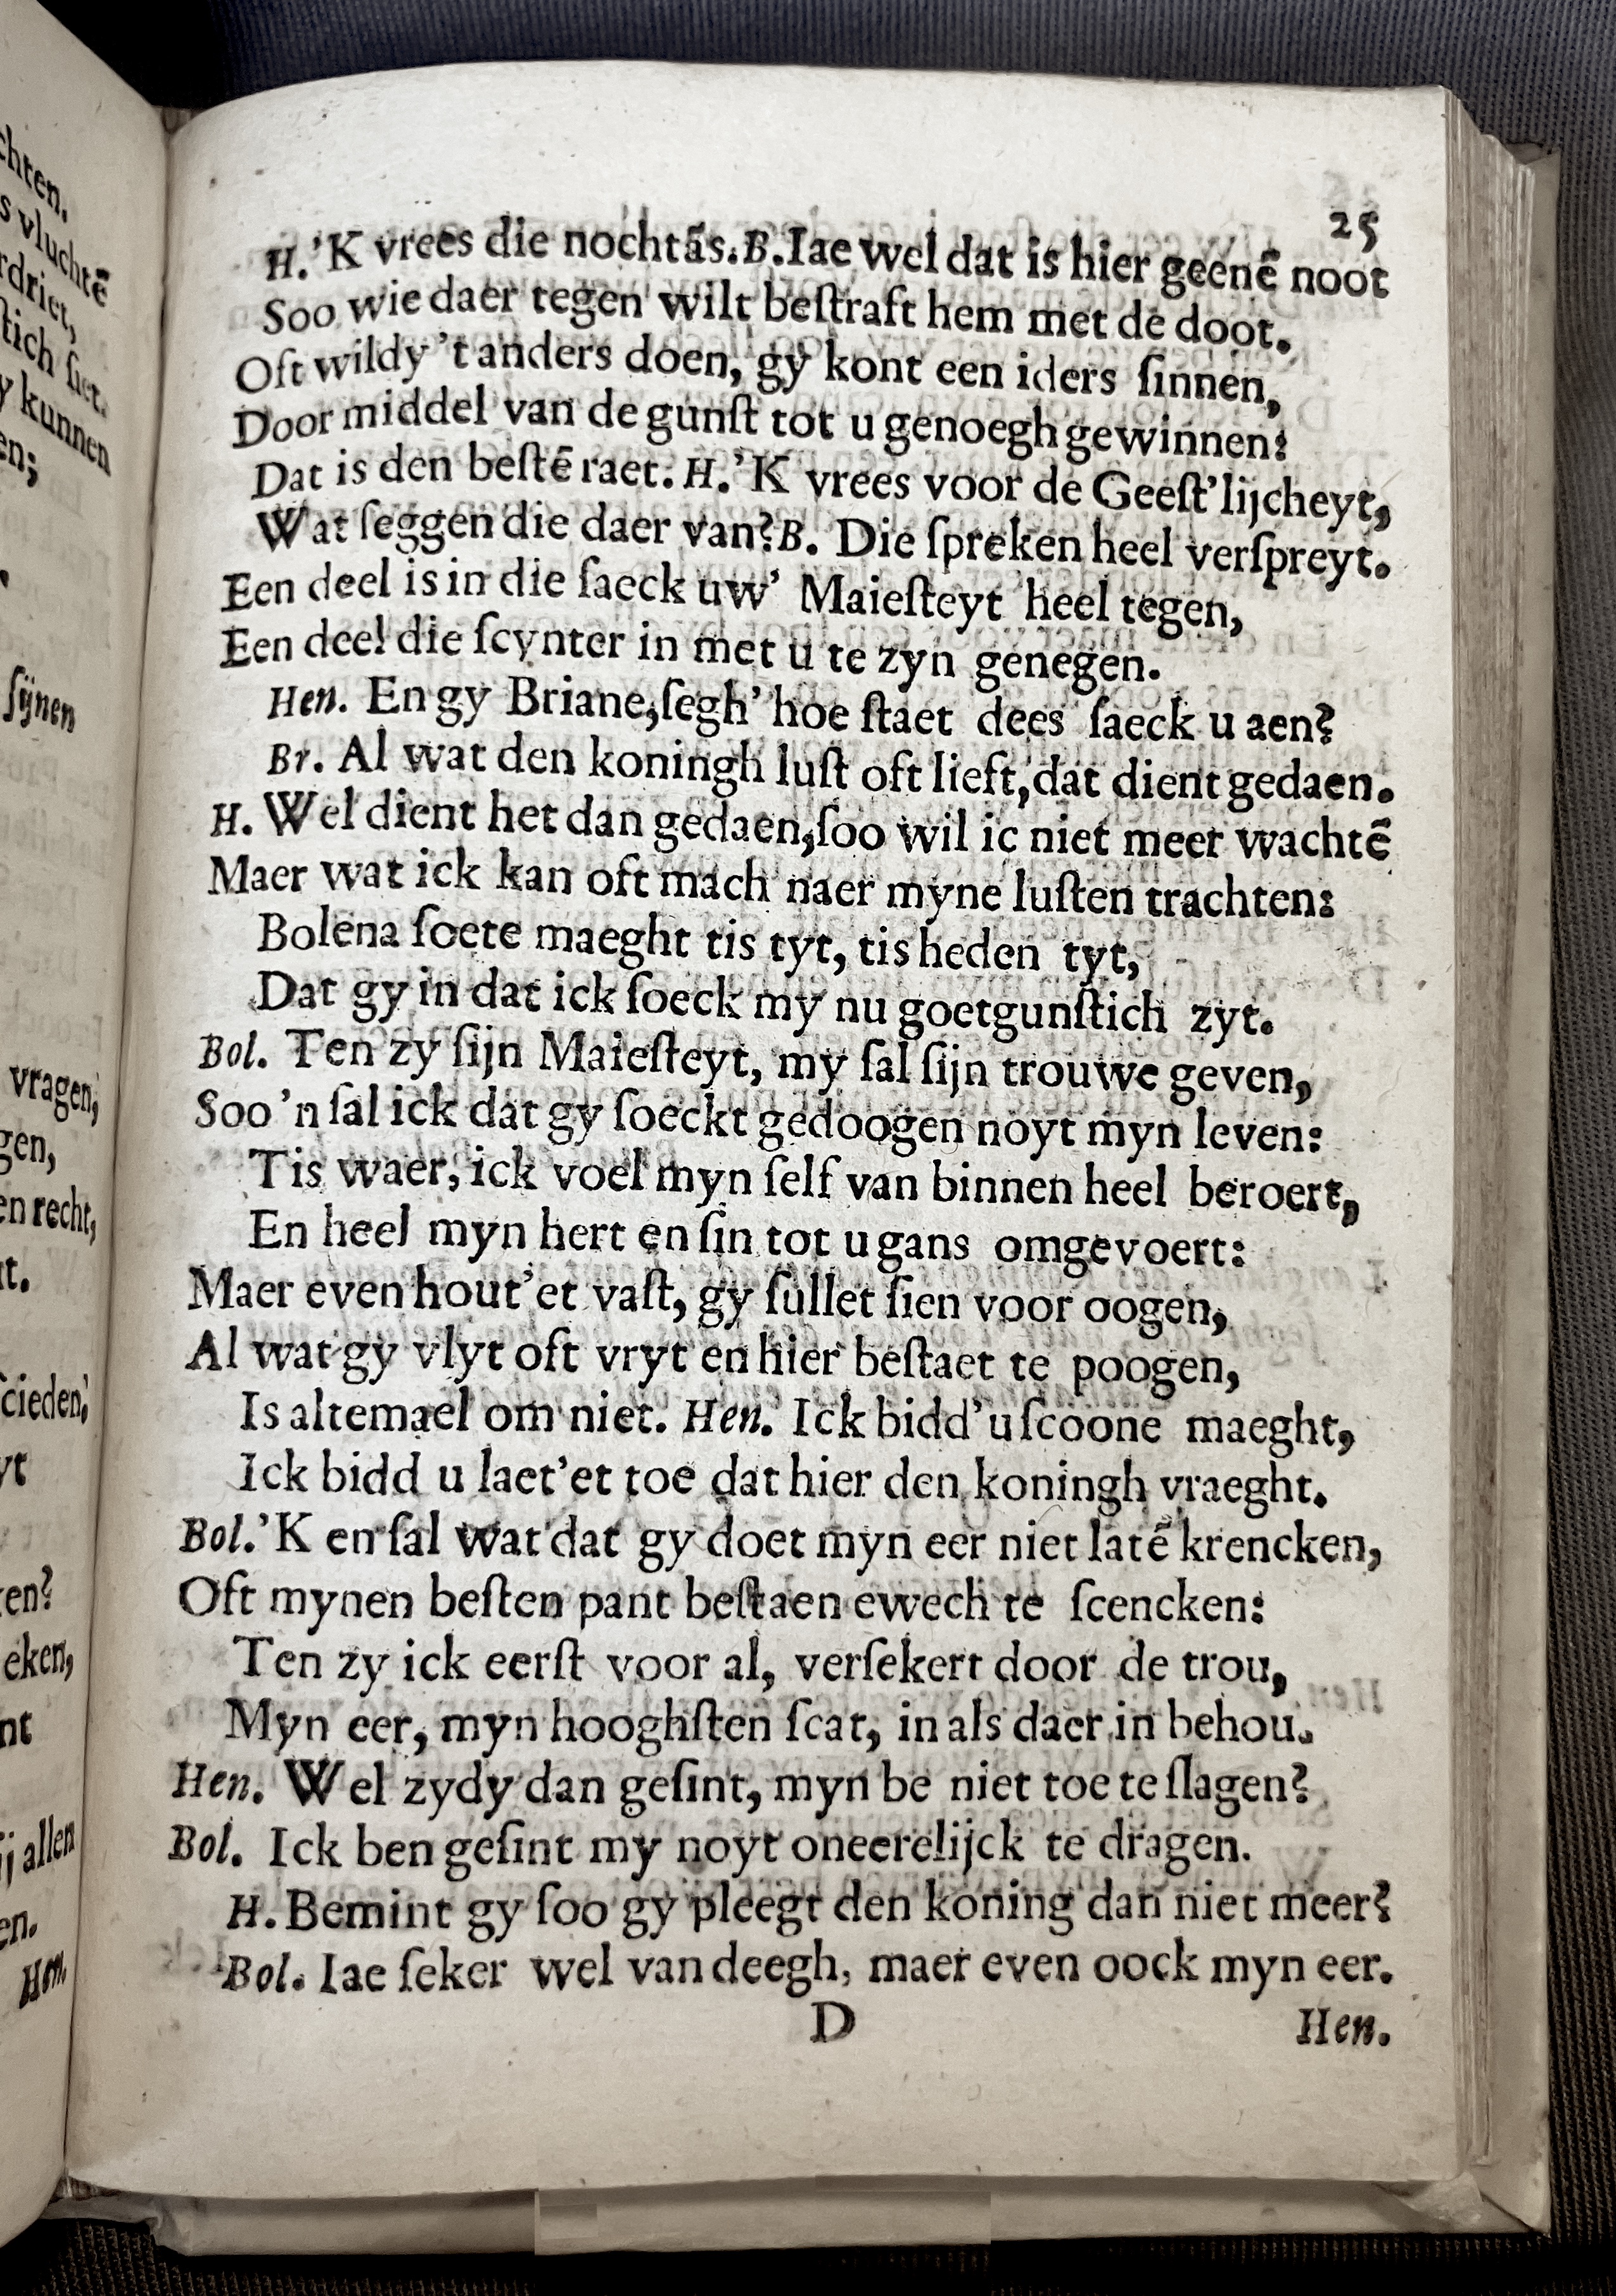 25
H.'K vrees die nochtãs.B.Iae wel dat is hier geenẽ noot
Soo wie daer tegen wilt beſtraft hem met de doot.
Oft wildy 't anders doen, gy kont een iders ſinnen,
Door middel van de gunſt tot u genoegh gewinnen:
Dat is den beſtẽ raet. H.'K vrees voor de Geeſt'lijcheyt,
Wat ſeggen die daer van? B. Die ſpreken heel verſpreyt.
Een deel is in die ſaeck uw' Maieſteyt heel tegen,
Een deel die ſcynter in met u te zyn genegen.
Hen. En gy Briane, ſegh' hoe ſtaet dees ſaeck u aen?
Br. Al wat den koningh luſt oft lieft, dat dient gedaen.
H. Wel dient het dan gedaen, ſoo wil ic niet meer wachtẽ
Maer wat ick kan oft mach naer myne luſten trachten:
Bolena ſoete maeght tis tyt, tis heden tyt,
Dat gy in dat ick ſoeck my nu goetgunſtich zyt.
Bol. Ten zy ſijn Maieſteyt, my ſal ſijn trouwe geven,
Soo 'n ſal ick dat gy ſoeckt gedoogen noyt myn leven:
Tis waer, ick voel myn ſelf van binnen heel beroert,
En heel myn hert en ſin tot u gans omgevoert:
Maer even hout'et vaſt, gy ſullet ſien voor oogen,
Al wat gy vlyt oft vryt en hier beſtaet te poogen,
Is altemael om niet. Hen. Ick bidd'u ſcoone maeght,
Ick bidd u laet'et toe dat hier den koningh vraeght.
Bol.'K en ſal wat dat gy doet myn eer niet latẽ krencken,
Oft mynen beſten pant beſtaen ewech te ſcencken:
Ten zy ick eerſt voor al, verſekert door de trou,
Myn eer, myn hooghſten ſcat, in als daer in behou.
Hen. Wel zydy dan geſint, myn be niet toe te ſlagen?
Bol. Ick ben geſint my noyt oneerelijck te dragen.
H. Bemint gy ſoo gy pleegt den koning dan niet meer?
Bol. Iae ſeker wel van deegh, maer even oock myn eer.
D
Hen.
chten.
vluchtẽ
rdriet,
ſtich ſiet.
y kunnen
en;
ſijnen
vragen,
gen,
en recht,
t.
ſcieden,
yt
ken?
eken,
nt
ij allen
en.
Hen.